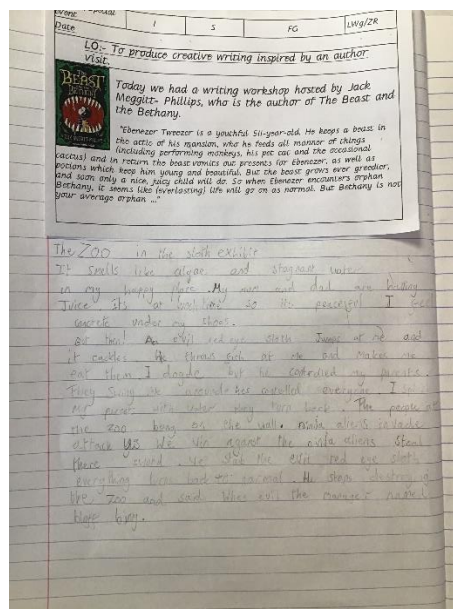 Event
Date
I
S
FG
LWg/ZR
LO:- To produce creative writing inspired by an author
visit.
BEAST
BETHANY
Today we had a writing workshop hosted by Jack
Meggitt- Phillips, who is the author of The Beast and
the Bethany.
"Ebenezer Tweezer is a youthful 511-year-old. He keeps a beast in
the attic of his mansion, who he feeds all manner of things
(including performing monkeys, his pet cat and the occasional
cactus) and in return the beast vomits out presents for Ebenezer, as well as
potions which keep him young and beautiful. But the beast grows ever greedier,
and soon only a nice, juicy child will do. So when Ebenezer encounters orphan
Bethany, it seems like (everlasting) life will go on as normal. But Bethany is not
your average orphan ..."
The Zoo in the sloth exhibit
It smells like algae and stagnant
in my happy place. My mum and dad are
Juice It's at so its peaceful I feel
concrete under my shoes.
But then! An evil red eye sloth Jumps at me and
it cackles. He throws at me and makes me
eat them I but he controlled my parents.
everyone. I
my parents with water they turn back. The people at
the Zoo bang on the wall. ninja aliens invade
attack We win against the ninja aliens steal
there sword. We the evil red eye sloth
everything back to normal. He stops destroying
the Zoo and said the manager named
bong.